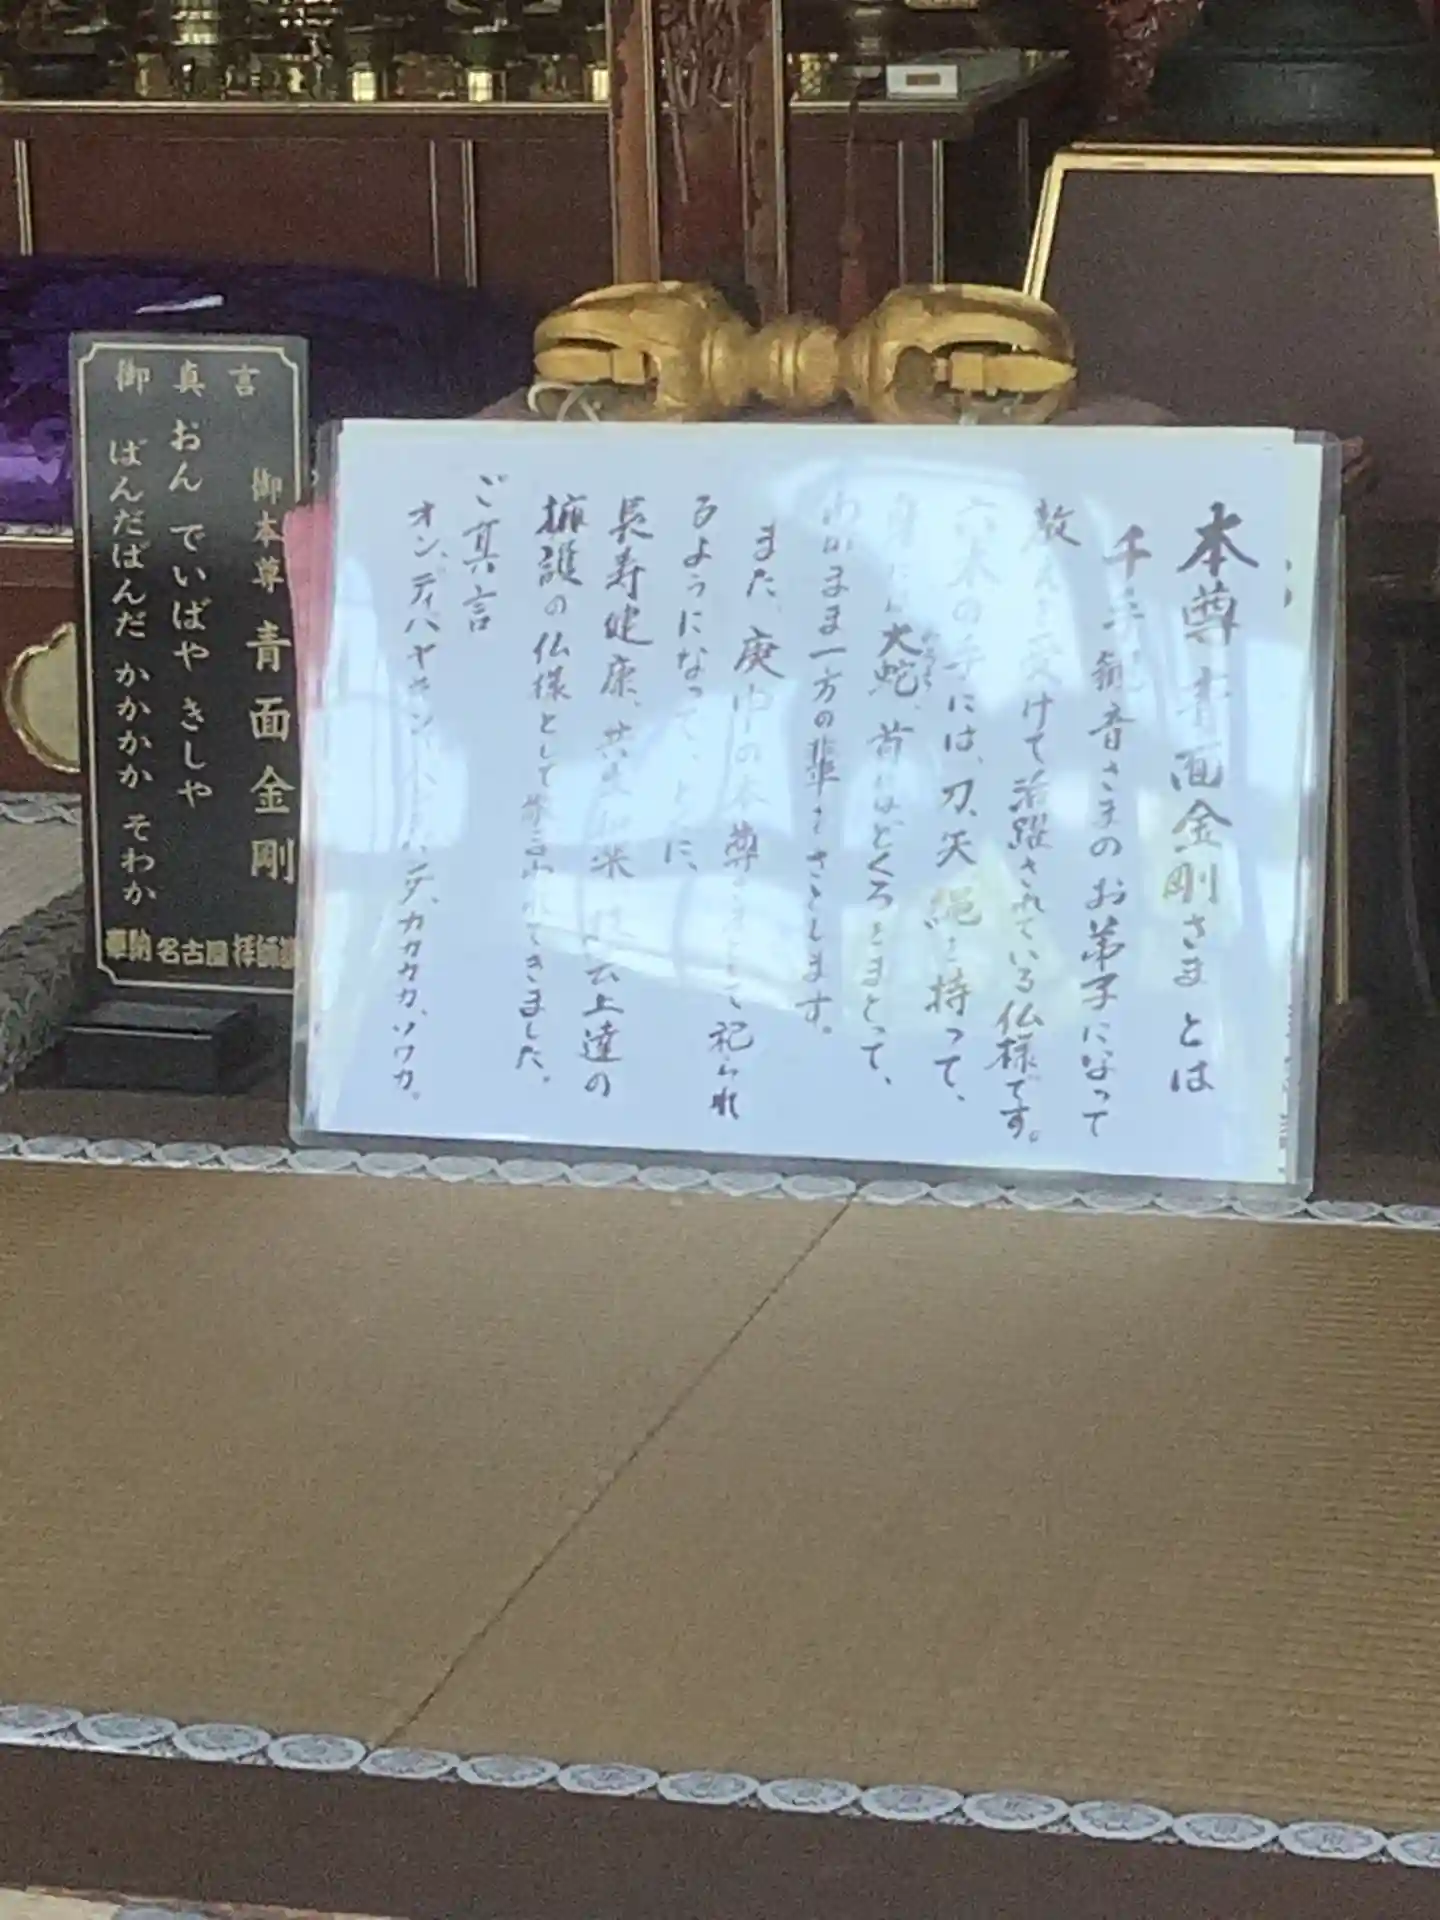 本尊青面金剛さまとは
千手観音さまのお弟子になって
教えを受けて活躍されている仏様です。
六本の手には、刀、矢、縄を持って、
身には大蛇、首にはどくろをまとって、
まま一方の
さとします。
また、庚申の本尊さまとして祀られ
るようになって、ともに、
長寿健康、
上達の
擁護の仏様として
きました。
ご真言
オン、ディバヤキシャ、バンダバンダ、カカカカ、ソワカ。
御真言
御本尊 青面金剛
おん でいばや きしや
ばんだばんだ かかかか そわか
奉納 名古屋